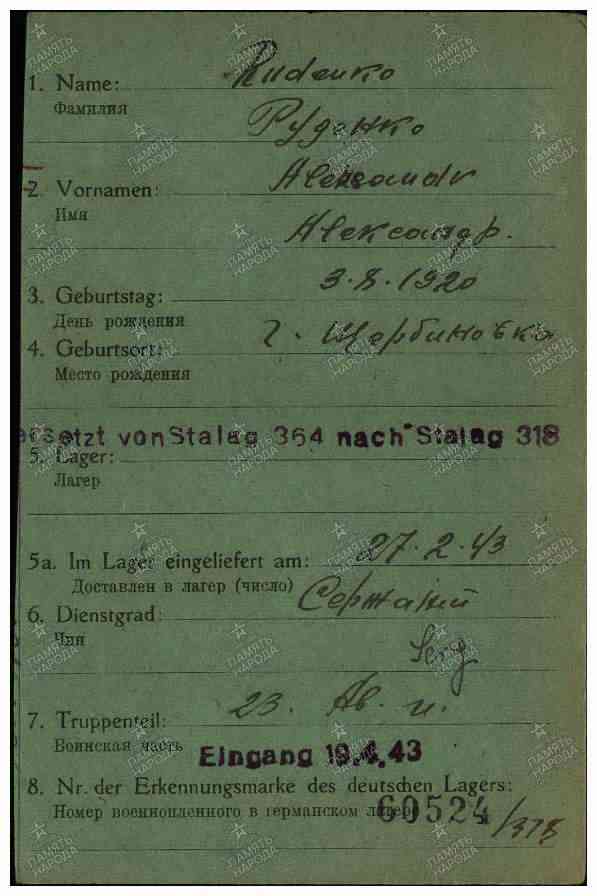 1. Name: Rudenko
Фамилия
Руденко
2. Vornamen: Alexandr
Имя
Александр.
3. Geburtstag: 3.8.1920
День рождения
4. Geburtsort: г. Щербиновка
Место рождения
ersetzt von Stalag 364 nach Stalag 318
5. Lager:
Лагер
5a. Im Lager eingeliefert am: 27.2.43
Доставлен в лагер (число)
6. Dienstgrad: Сержант
Чин
Serg
7. Truppenteil: 23. Ав. п.
Воинская часть
Eingang 19.4.43
8. Nr. der Erkennungsmarke des deutschen Lagers:
Номер военнопленного в германском лагере
60524/318
ПАМЯТЬ НАРОДА